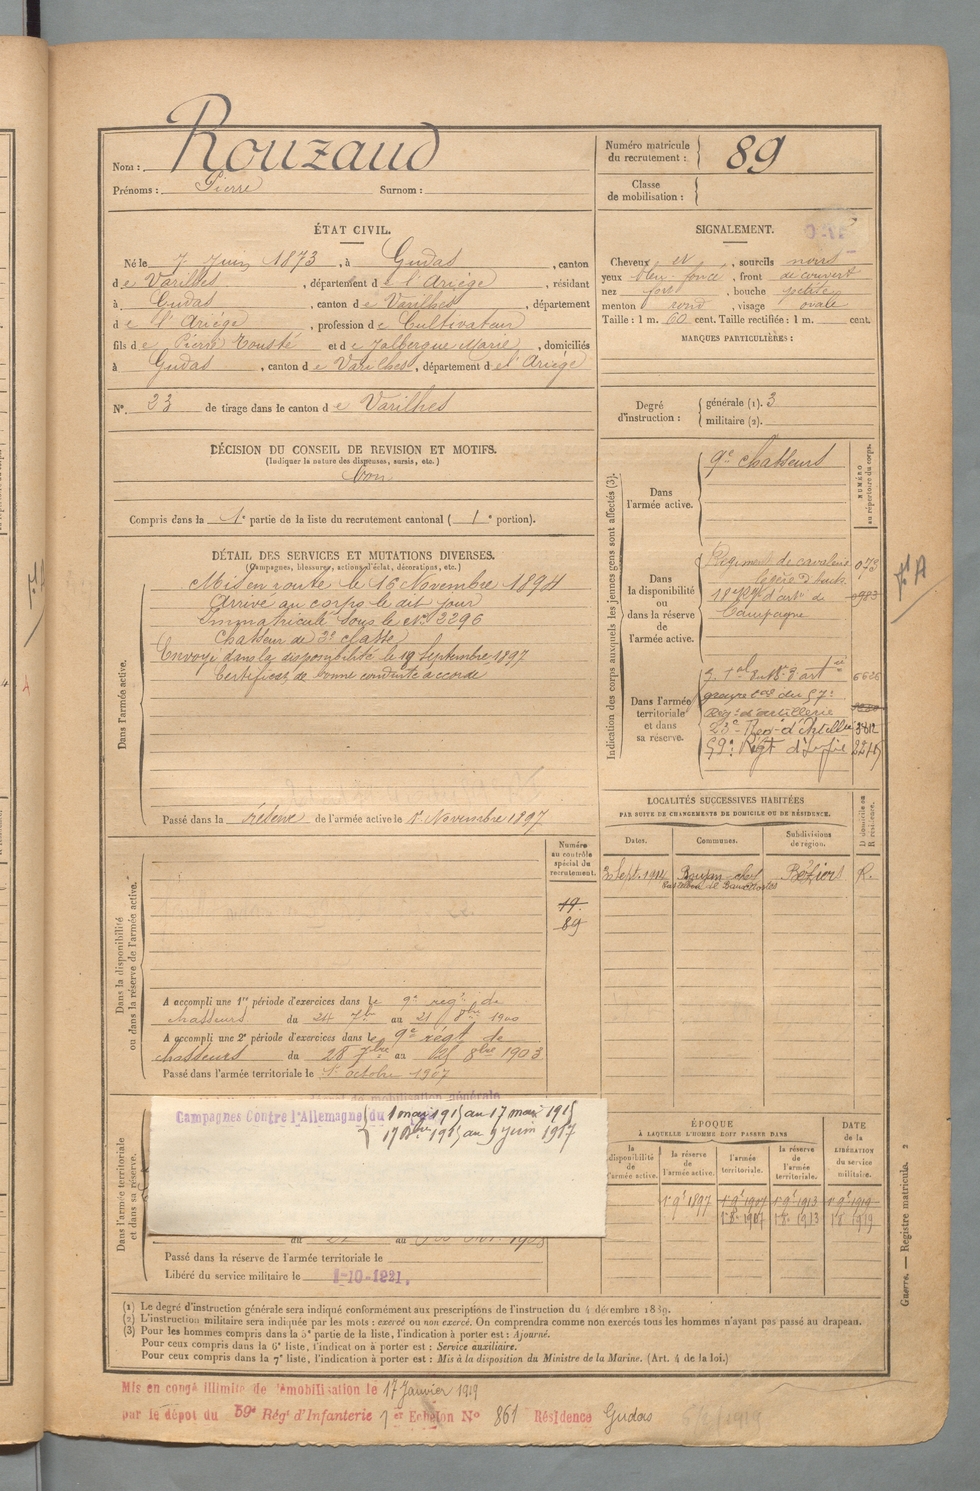 Nom : Rouzaud
Prénoms : Pierre Surnom :
Numéro matricule du recrutement : 89
Classe de mobilisation :
ÉTAT CIVIL.
Né le 7 Juin 1873, à Gudas, canton
de Varilhes, département de l'Ariège, résidant
à Gudas, canton de Varilhes, département
de l'Ariège, profession de Cultivateur
fils de Pierre et de Marie, domiciliés
à Gudas, canton de Varilhes, département de l'Ariège
N° 23 de tirage dans le canton de Varilhes
SIGNALEMENT.
Cheveux et, sourcils noirs
yeux bleu-foncé, front découvert
nez fort, bouche petite
menton rond, visage ovale
Taille : 1 m. 60 cent. Taille rectifiée : 1 m. cent.
MARQUES PARTICULIÈRES :
Degré d'instruction : générale (1). 3
militaire (2).
DÉCISION DU CONSEIL DE REVISION ET MOTIFS.
(Indiquer la nature des dispenses, sursis, etc.)
bon
Compris dans la 1e partie de la liste du recrutement cantonal ( 1e portion).
DÉTAIL DES SERVICES ET MUTATIONS DIVERSES.
(Campagnes, blessures, actions d'éclat, décorations, etc.)
Dans l'armée active.
Mis en route le 16 Novembre 1894
Arrivé au corps le dit jour
Immatriculé sous le N° 2296
Chasseur de 2e classe
Envoyé dans la disponibilité le 19 Septembre 1897
Certificat de bonne conduite accordé
Passé dans la réserve de l'armée active le 1r Novembre 1897
Indication des corps auxquels les jeunes gens sont affectés (3).
NUMÉRO au répertoire du corps.
Dans l'armée active.
9e chasseurs
Dans la disponibilité ou dans la réserve de l'armée active.
Régiment de cavalerie
légère
18e Rgt d'artie de
Campagne
Dans l'armée territoriale et dans sa réserve.
groupe du 57e
Régt d'artillerie
23e Reg. d'Artillie 3812
59e Régt d'Infie
LOCALITÉS SUCCESSIVES HABITÉES
PAR SUITE DE CHANGEMENTS DE DOMICILE OU DE RÉSIDENCE.
Dates. Communes. Subdivisions de région. D domicile ou R résidence.
Sept. 1914 Béziers R.
Dans la disponibilité ou dans la réserve de l'armée active.
Numéro au contrôle spécial du recrutement.
19
89
A accompli une 1re période d'exercices dans le 9e régt de
chasseurs du 24 7bre au 21 8bre 1900
A accompli une 2e période d'exercices dans le 9e régt de
chasseurs du 28 7bre au 8bre 1903
Passé dans l'armée territoriale le 1r octobre 1907
Dans l'armée territoriale et dans sa réserve.
de mobilisation générale
Campagnes Contre l'Allemagne du 1 mai 1915 au 17 mai 1915
1917
Passé dans la réserve de l'armée territoriale le
Libéré du service militaire le 1-10-1921.
ÉPOQUE
À LAQUELLE L'HOMME DOIT PASSER DANS
la disponibilité de l'armée active. la réserve de l'armée active. l'armée territoriale. la réserve de l'armée territoriale.
DATE de la LIBÉRATION du service militaire.
1r 9e 1897 1r 9e 1907 1r 9e 1913 1r 9e 1919
1r 8e 1907 1r 8e 1913 1r 8e 1919
Guerre. — Registre matricule. 2
(1) Le degré d'instruction générale sera indiqué conformément aux prescriptions de l'instruction du 4 décembre 1889.
(2) L'instruction militaire sera indiquée par les mots : exercé ou non exercé. On comprendra comme non exercés tous les hommes n'ayant pas passé au drapeau.
(3) Pour les hommes compris dans la 5e partie de la liste, l'indication à porter est : Ajourné.
Pour ceux compris dans la 6e liste, l'indication à porter est : Service auxiliaire.
Pour ceux compris dans la 7e liste, l'indication à porter est : Mis à la disposition du Ministre de la Marine. (Art. 4 de la loi.)
Mis en congé illimité de démobilisation le 17 Janvier 1919
par le dépot du 59e Régt d'Infanterie 1er Echelon N° 861 Résidence Gudas